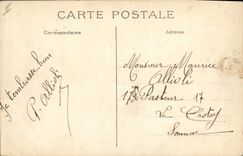 CARTE POSTALE
Correspondance
Adresse
Je t'embrasse bien
P. Allioli
Monsieur Maurice
Allioli
17 R Pasteur 17
Le Crotoy
Somme